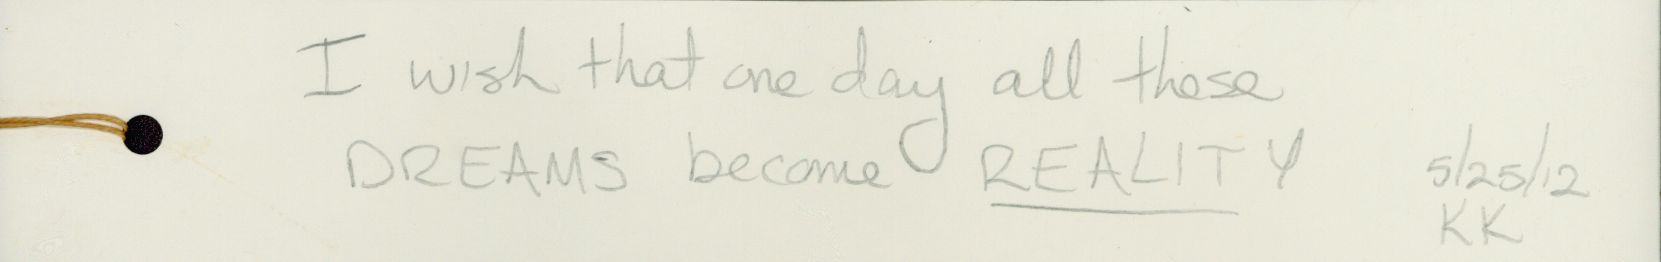 I wish that one day all these
DREAMS become REALITY
5/25/12
KK